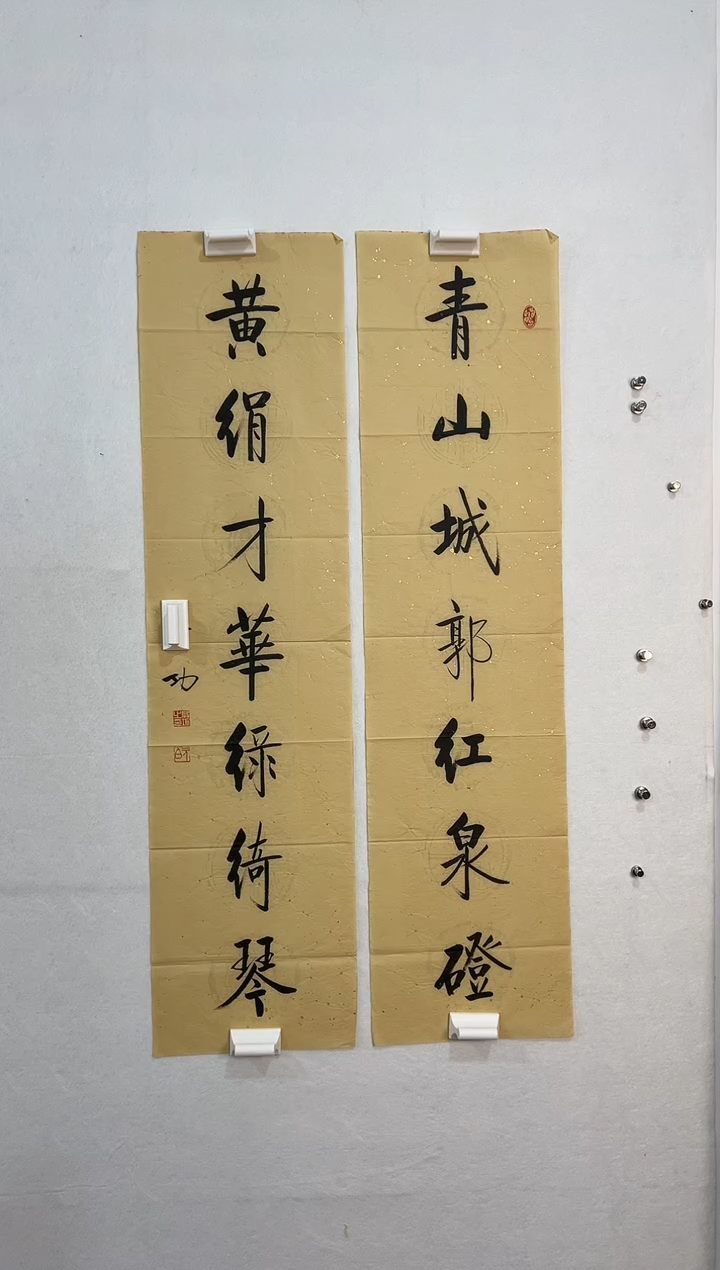 青山城郭红泉磴
黄绢才華緑绮琴
功